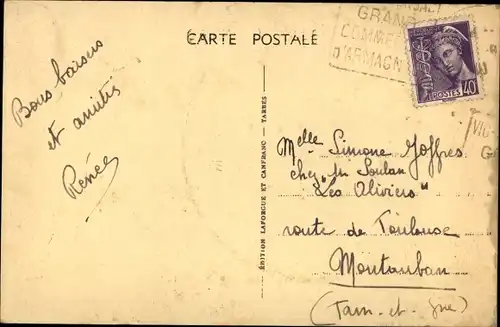 CARTE POSTALE
GRAND
COMME
D'ARMAGN
POSTES 40
VIC
G
Bons baisers
et amitiés
Renée
ÉDITION LAFORGUE ET CANFRANC — TARBES
Melle Simone Joffres
chez Mr Soulan
"Les Oliviers"
route de Toulouse
Montauban
(Tarn-et-Gne)